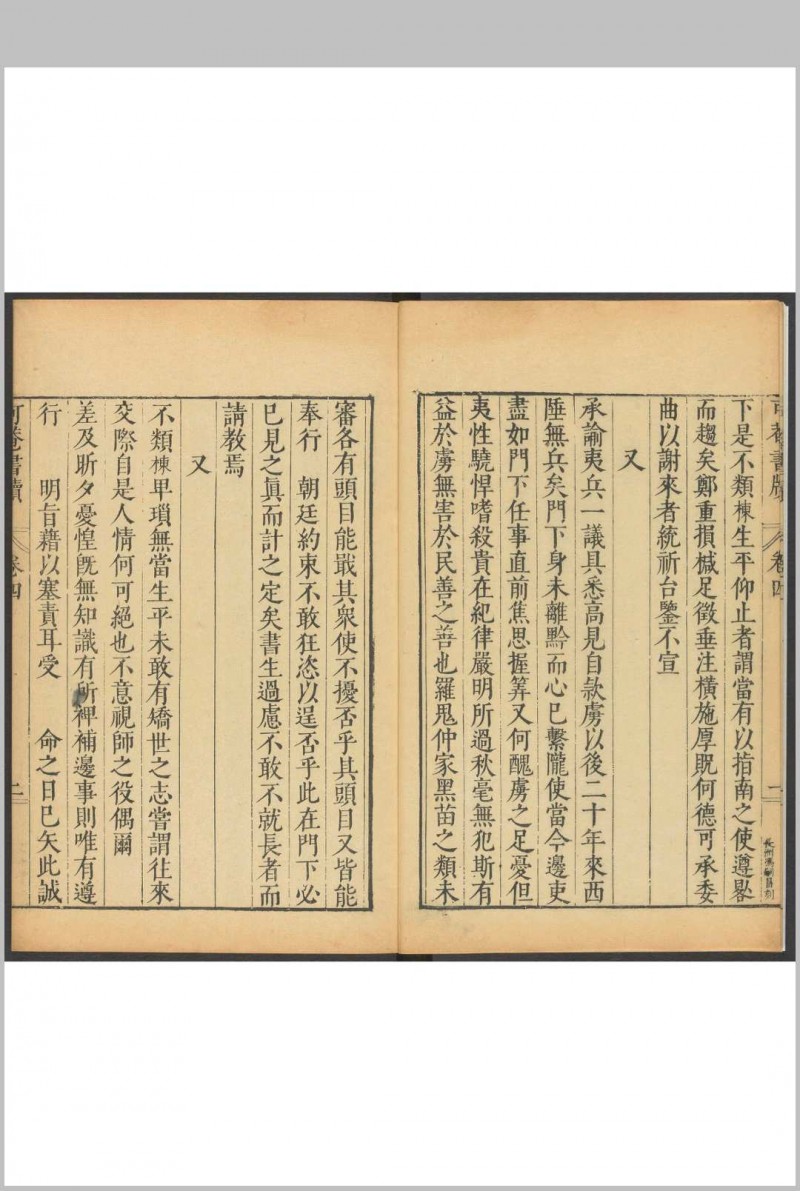 下是不類棟生平仰止者謂當有以指南之使遵畧
而趨矣鄭重損椷足徵垂注橫施厚貺何德可承委
曲以謝來者統祈台鑒不宣
又
承諭夷兵一議具悉高見自款虜以後二十年來西
陲無兵矣門下身未離黔而心已繫隴使當今邊吏
盡如門下任事直前焦思握筭又何醜虜之足憂但
夷性驍悍嗜殺貴在紀律嚴明所過秋毫無犯斯有
益於虜無害於民善之善也羅鬼仲家黑苗之類未
審各有頭目能戢其衆使不擾否乎其頭目又皆能
奉行 朝廷約束不敢狂恣以逞否乎此在門下必
已見之真而計之定矣書生過慮不敢不就長者而
請教焉
又
不類棟卑瑣無當生平未敢有矯世之志嘗謂往來
交際自是人情何可絕也不意視師之役偶爾
差及昕夕憂惶旣無知識有所裨補邊事則唯有遵
行 明旨藉以塞責耳受 命之日已矢此誠
卷四
二